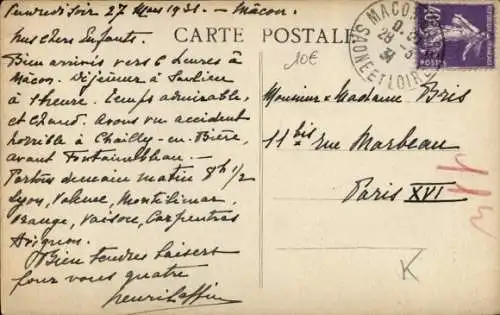 Vendredi soir 27 Mars 1931. - Mâcon.
mes chers Enfants.
Bien arrivés vers 6 heures à
Mâcon. Déjeuner à Saulieu
à 1 heure. Temps admirable,
et chaud. Avons vu accident
horrible à Chailly-en-Bière,
avant Fontainebleau. -
Partons demain matin 8h 1/2
Lyon, Valence, Montélimar,
Orange, Vaison, Carpentras
Avignon.
Bien tendres baisers
pour vous quatre
CARTE POSTALE
10€
MACON
SAONE ET LOIRE
28 - 3
31
40c
POSTES
Monsieur & Madame Bris
11 bis rue Marbeau
Paris XVI
K